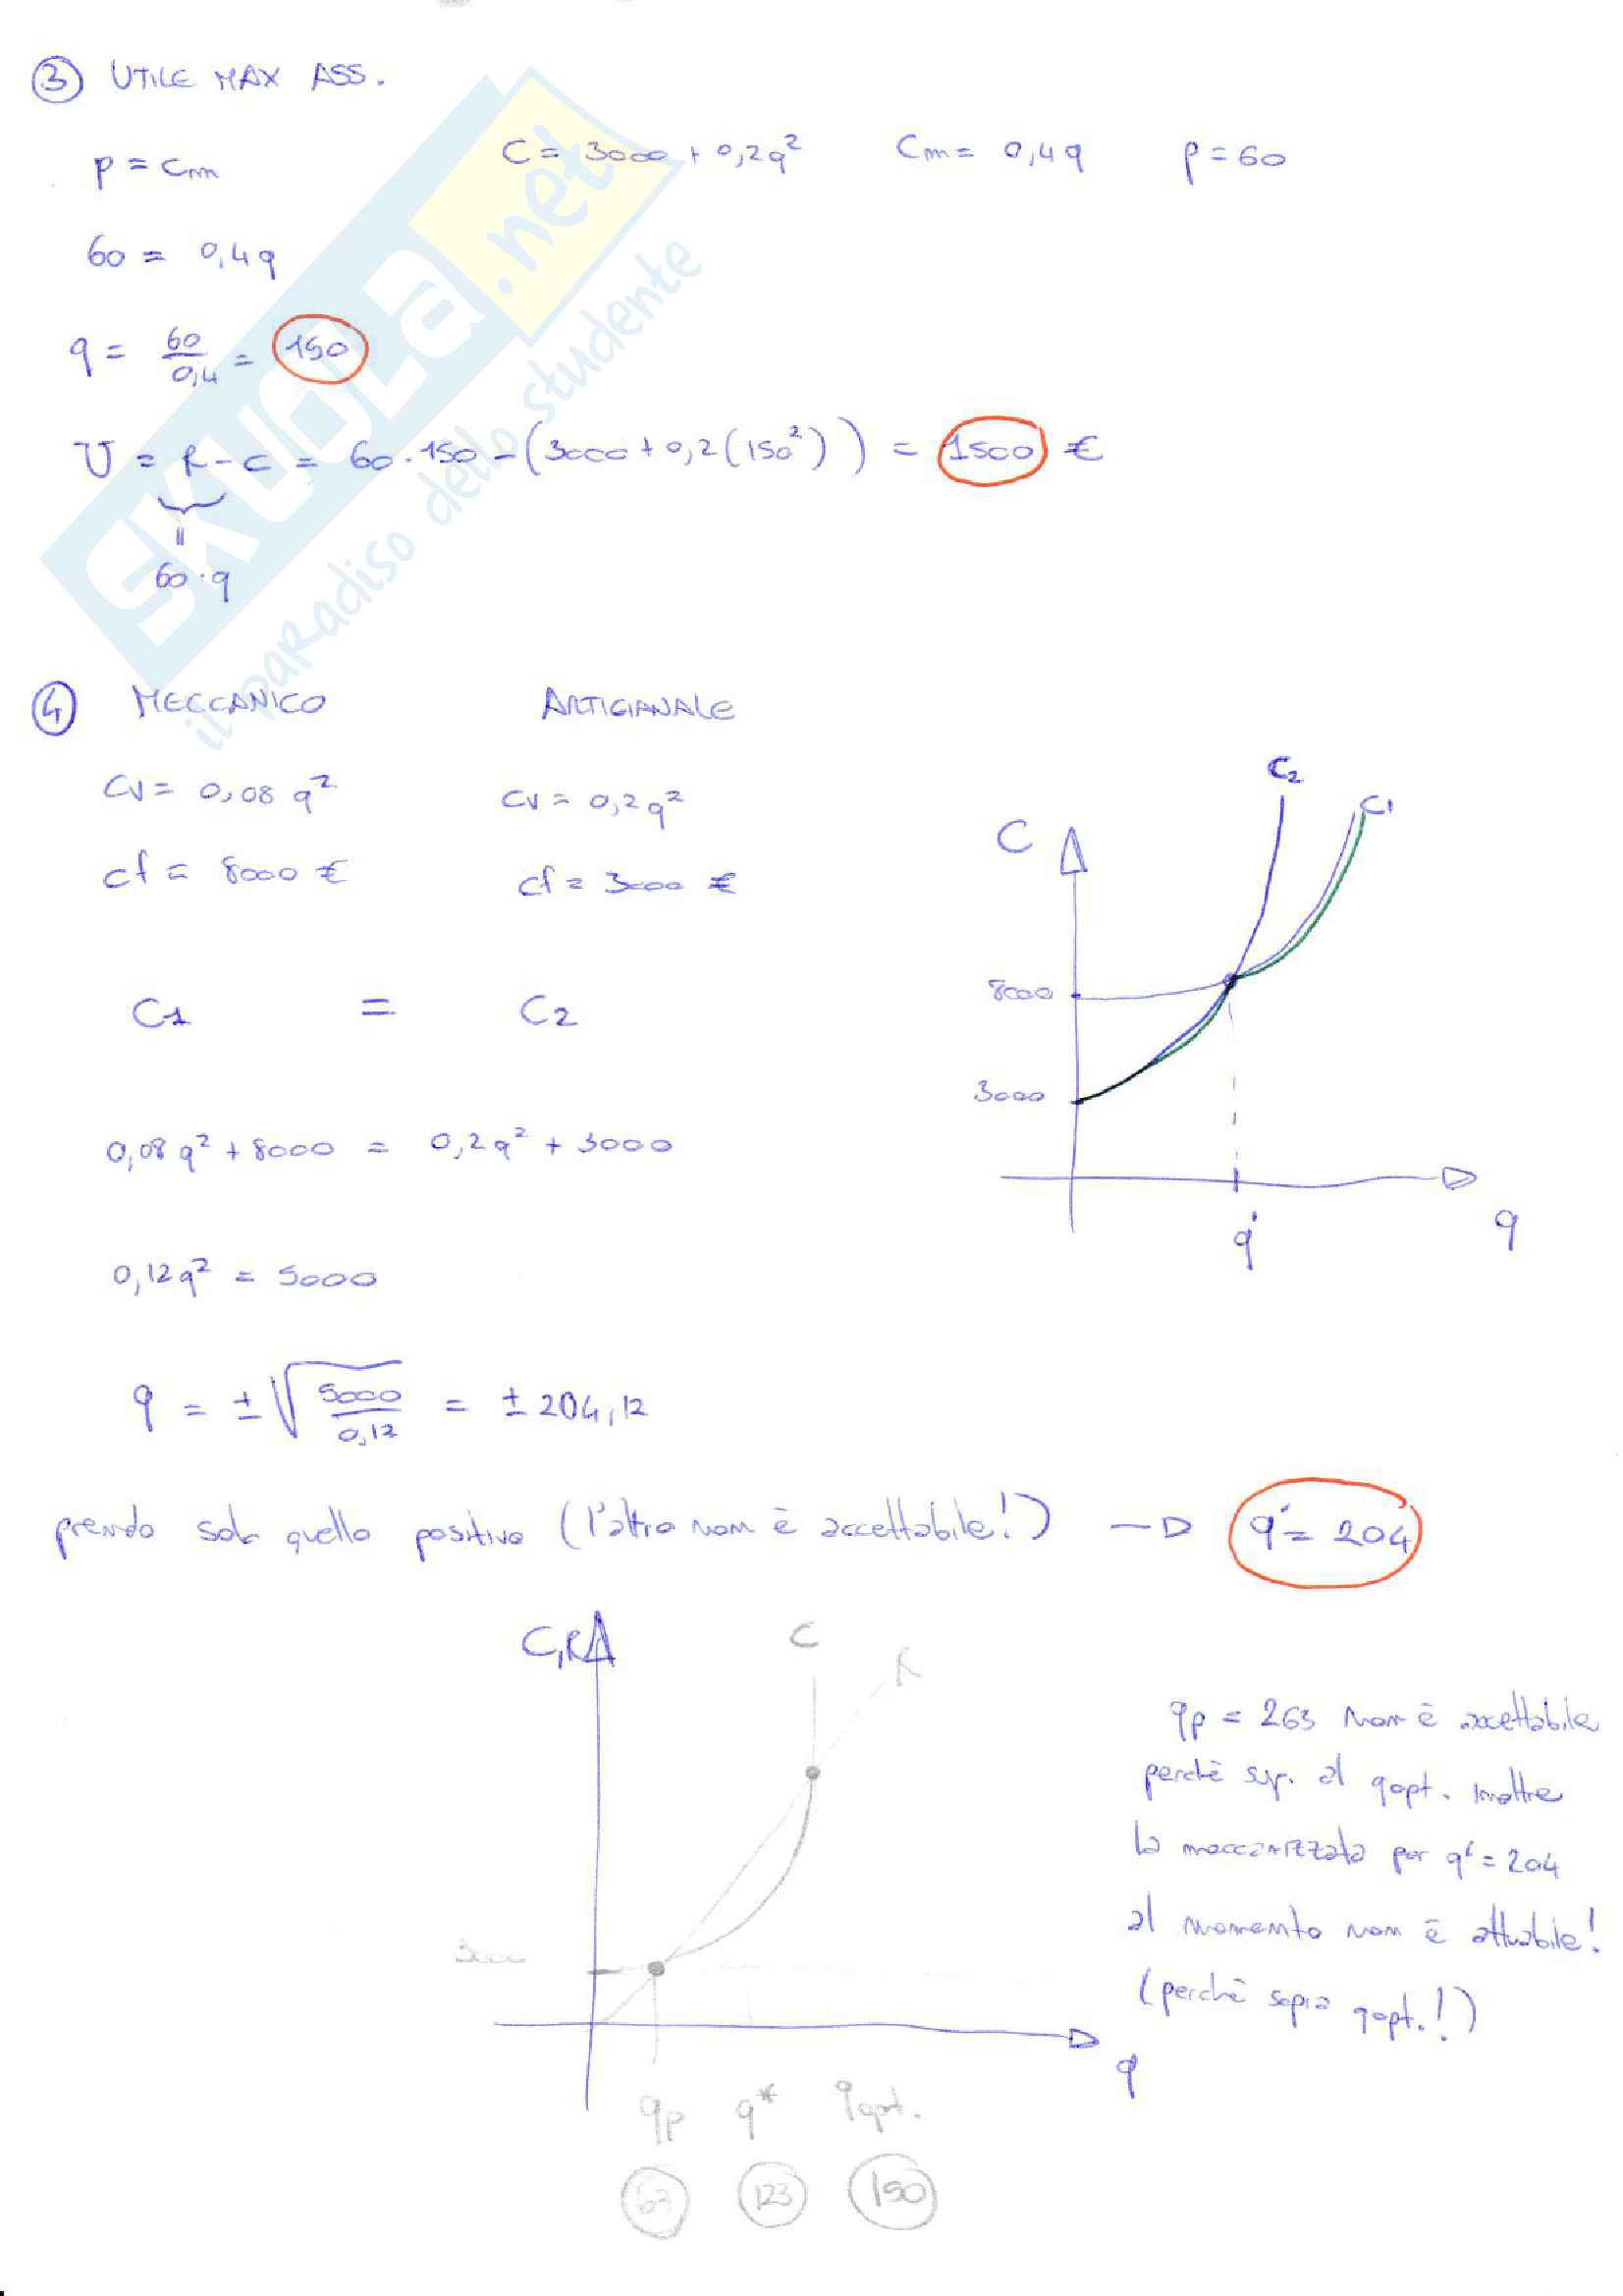 ③ UTILE MAX ASS.
p = Cm
C = 3000 + 0,2q² Cm = 0,4q p = 60
60 = 0,4q
q = 60/0,4 = 150
U = R - C = 60 · 150 - (3000 + 0,2(150²)) = 1500 €
=
60 · q
SKUOLa.net
il paradiso dello studente
④ MECCANICO ARTIGIANALE
CV = 0,08 q² CV = 0,2q²
Cf = 8000 € Cf = 3000 €
C1 = C2
0,08q² + 8000 = 0,2q² + 3000
0,12q² = 5000
q = ±√5000/0,12 = ± 204,12
C
C2
C1
8000
3000
q'
q
prendo solo quello positivo (l'altro non è accettabile!) → q' = 204
C,R
C
R
3000
q
qp q* qopt.
63 123 150
qp = 263 non è accettabile
perchè sup. al qopt. inoltre
la meccanizzata per q' = 204
al momento non è attuabile!
(perchè sopra qopt.!)